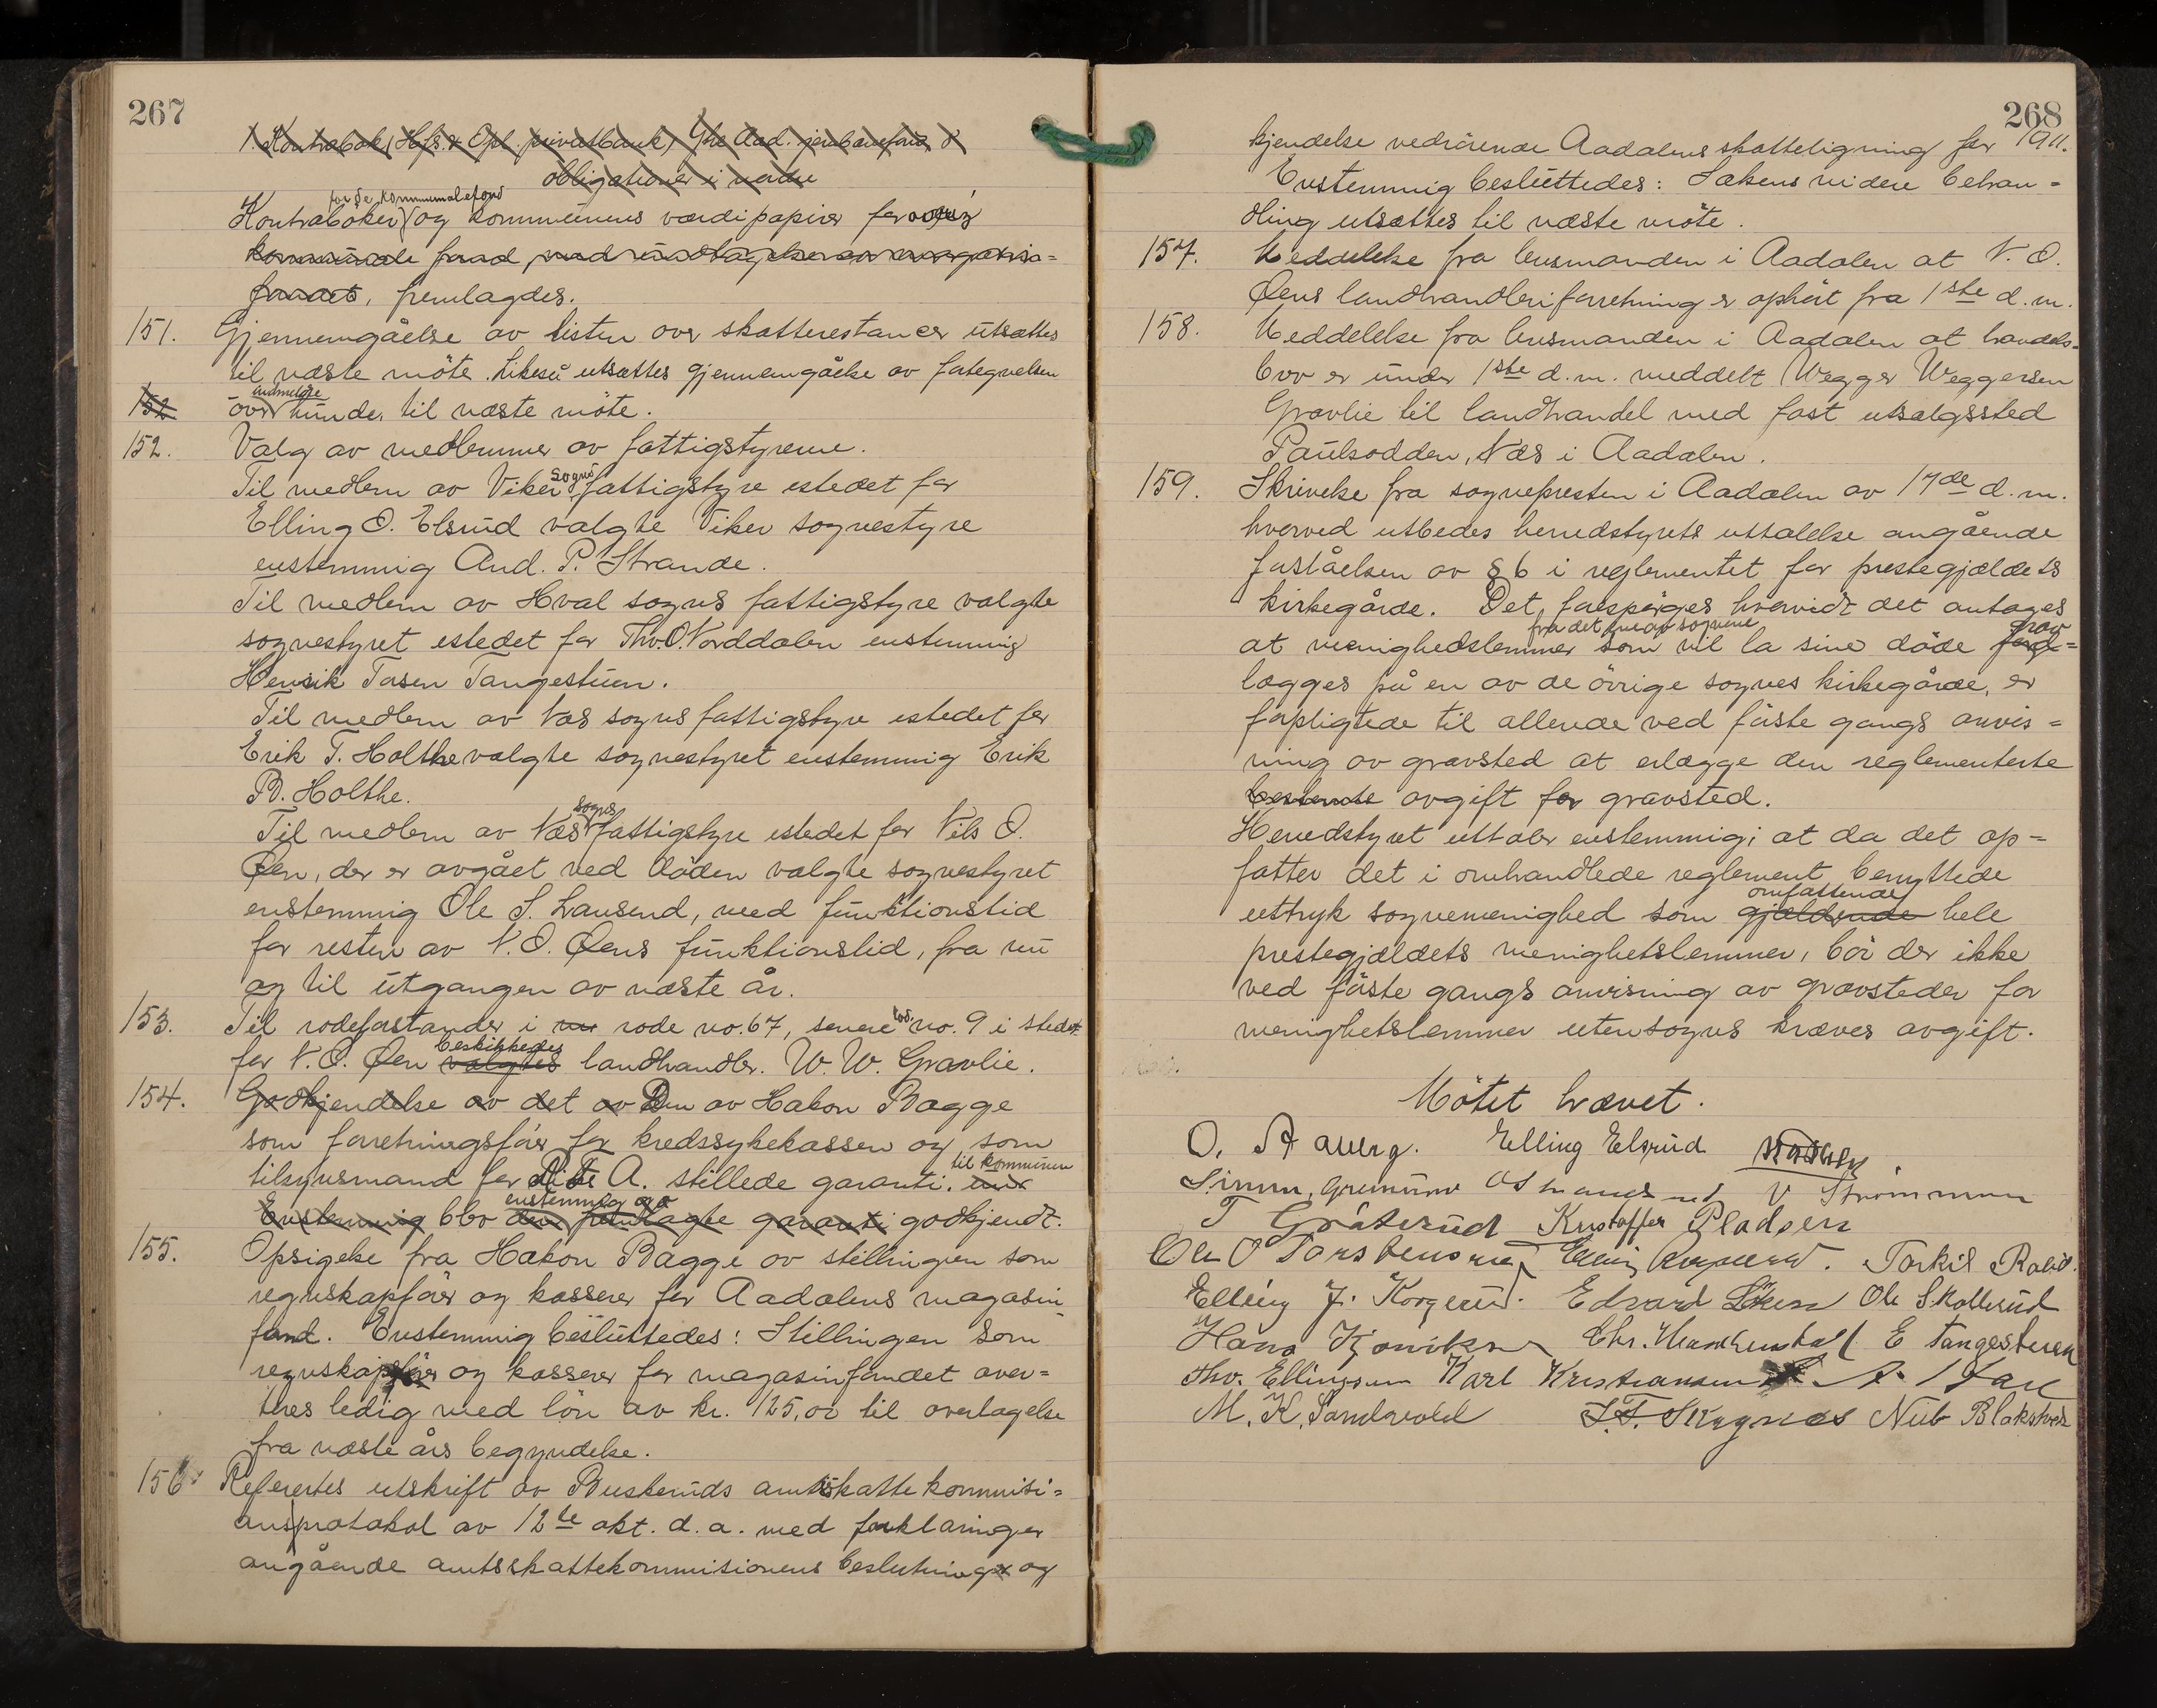 267
1. Kontrabok (Hfs. & Opl. privatbank) Ghe Aad. jernbanefond &
obligationer i nordre
for de kommunalefond
Kontrabøker og kommunens værdipapirer for
kommunale fond, med undtagelse av magasin=
fondet, fremlagdes.
151. Gjennemgåelse av listen over skatterestancer utsættes
til næste møte. Likeså utsættes gjennemgåelse av fortegnelsen
anmeldte
152 over hunde, til næste møte.
152. Valg av medlemmer av fattigstyrerne.
sogns
Til medlem av Viker fattigstyre istedet for
Elling O. Elsrud valgte Viker sognestyre
enstemmig And. P. Strande.
Til medlem av Hval sogns fattigstyre valgte
sognestyret istedet for Thv. O. Norddalen enstemmig
Henrik Tosen Tangestuen.
Til medlem av Næs sogns fattigstyre istedet for
Erik T. Holthe valgte sognestyret enstemmig Erik
B. Holthe.
sogns
Til medlem av Næs fattigstyre istedet for Nils O.
Øen, der er avgået ved døden valgte sognestyret
enstemmig Ole S. Lausend, med funktionstid
for resten av N. O. Øens funktionstid, fra nu
og til utgangen av næste år.
153. Til rodeforstander i rode no. 67, senere no. 9 i stedet
beskikkedes
for N. O. Øen valgtes landhandler. W. W. Gravlie.
154. Godkjendelse av det av Den av Hakon Bagge
som forretningsfører for kredssykekassen og som
til kommunen
tilsynsmand for Rite A. stillede garanti.
enstemmig
Enstemmig blev den fremlagte garanti godkjendt.
155. Opsigelse fra Hakon Bagge av stillingen som
regnskapfører og kasserer for Aadalens magasin
fond. Enstemmig besluttedes: Stillingen som
regnskapsfører og kasserer for magasinfondet aver=
teres ledig med løn av kr. 125,00 til overtagelse
fra næste års begyndelse.
156. Refereretes utskrift av Buskeruds amtsskattekommisi=
onsprotokol av 12te okt. d. a. med forklaringer
angående amtsskattekommisionens beslutning og
268
kjendelse vedrörende Aadalens skatteligning for 1911.
Enstemmig besluttedes: Sakens videre behan=
dling utsættes til næste möte.
157. Meddelelse fra lensmanden i Aadalen at N. O.
Øens landhandleriforretning er ophört fra 1ste d. m.
158. Meddelelse fra lensmanden i Aadalen at handels=
brev er under 1ste d. m. meddelt Wegger Weggersen
Gravlie til landhandel med fast utsalgssted
Paulsodden, Næs i Aadalen.
159. Skrivelse fra sognepresten i Aadalen av 17de d. m.
hvorved utbedes herredstyrets uttalelse angående
forståelsen av § 6 i reglementet for prestegjældets
kirkegårde. Det forespörges hvorvidt det antages
fra det ene av sognene grav
at menighedslemmer som vil la sine döde
lægges på en av de övrige sognes kirkegårde, er
forpligtede til allerede ved förste gangs anvis=
ning av gravsted at erlægge den reglementerte
bestemte avgift for gravsted.
Herredstyret uttaler enstemmig: at da det op=
fatter det i omhandlede reglement benyttede
omfattende
uttryk sognemenighed som gjældende hele
prestegjældets menighetslemmer, bör der ikke
ved förste gangs anvisning av gravsteder for
menighetslemmer utensogns kræves avgift.
Mötet hævet.
O. Aaberg. Elling Elsrud
Simm. Grenumo V Strömmen
T Gråterud Kristoffer Pladsen
Ole O Torstensrud Torkil Rolid.
Elling J. Korgerud. Edvard Ole Skollerud
Hans E Tangestuen
Thv. Ellingsen Karl Kristiansen
M. K. Sandvold T. T. Skagnæs Nils Blakstved